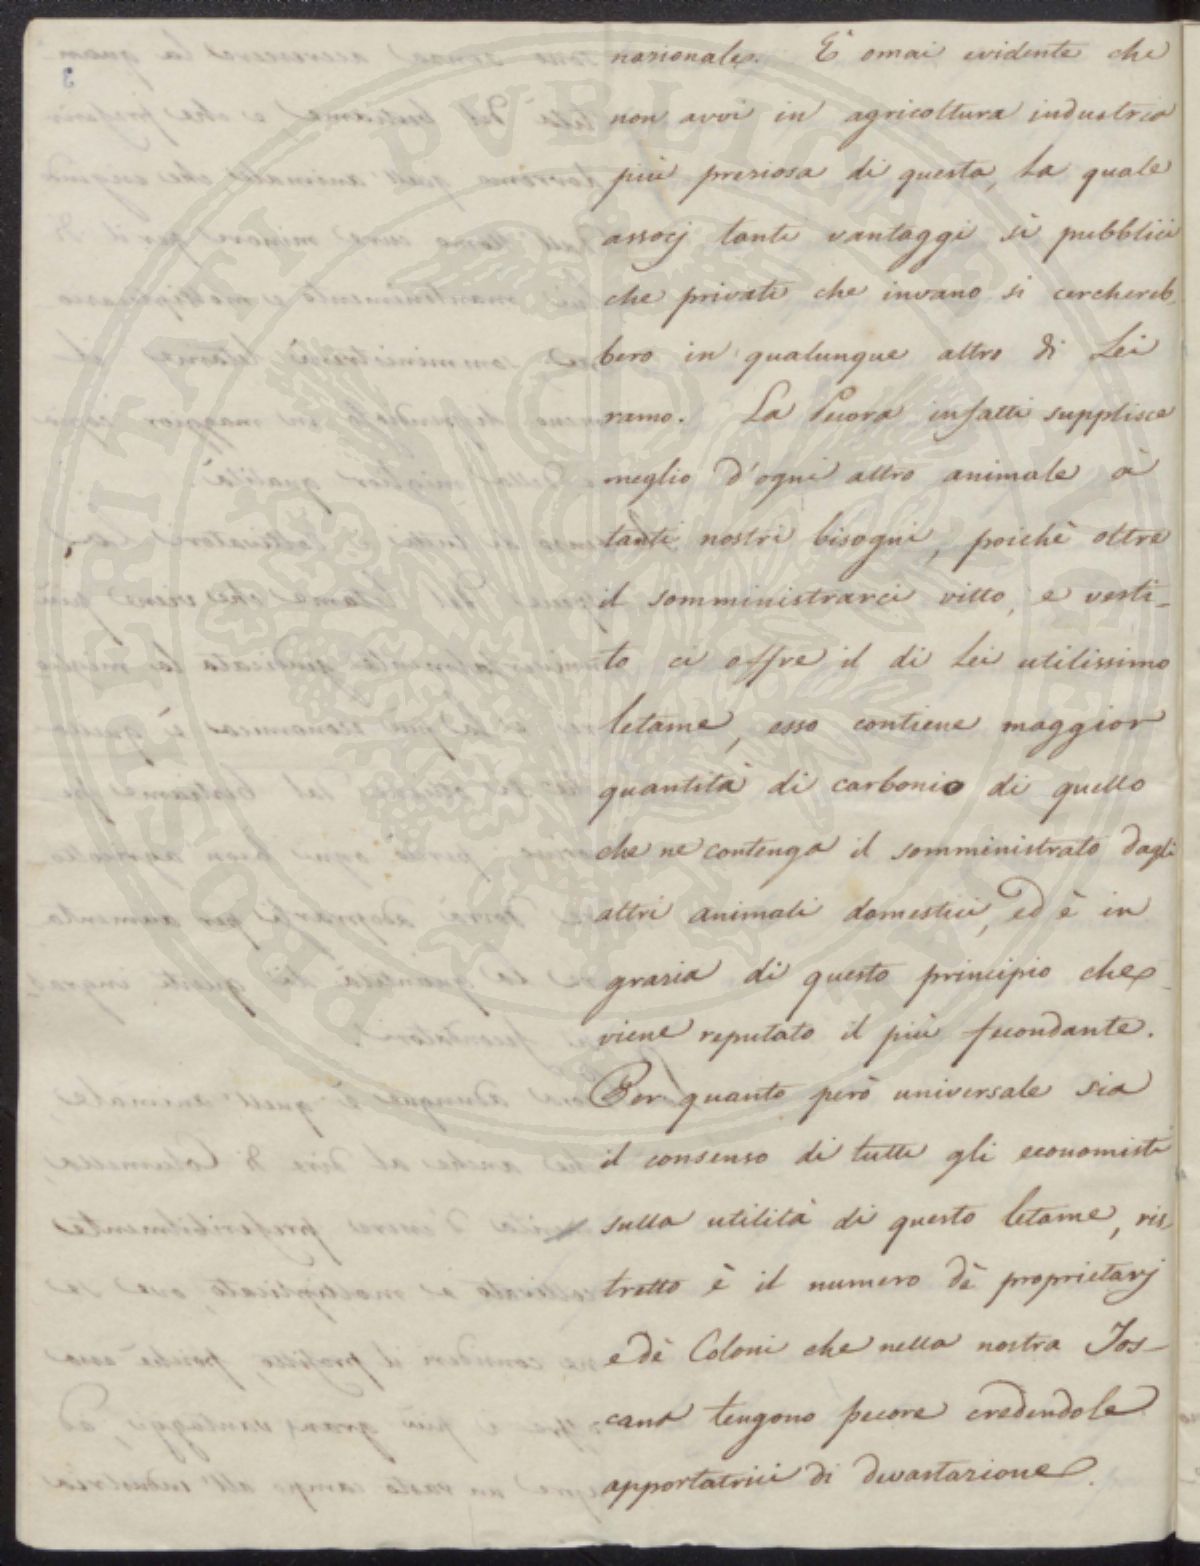 nazionale. È omai evidente che
non avvi in agricoltura industria
più preziosa di questa, la quale
associ tanti vantaggi sì pubblici
che privati che invano si cerchereb
bero in qualunque altro di Lei
ramo. La Pecora infatti supplisce
meglio d'ogni altro animale a
tanti nostri bisogni, poichè oltre
il somministrarci vitto, e vesti-
to ci offre il di Lei utilissimo
letame, esso contiene maggior
quantità di carbonio di quello
che ne contenga il somministrato dagli
altri animali domestici, ed è in
grazia di questo principio che
viene reputato il più fecondante.
Per quanto però universale sia
il consenso di tutti gli economisti
sulla utilità di questo letame, ris
tretto è il numero dè proprietarj
e dè Coloni che nella nostra Tos-
cana tengono pecore credendole
apportatrici di devastazione.